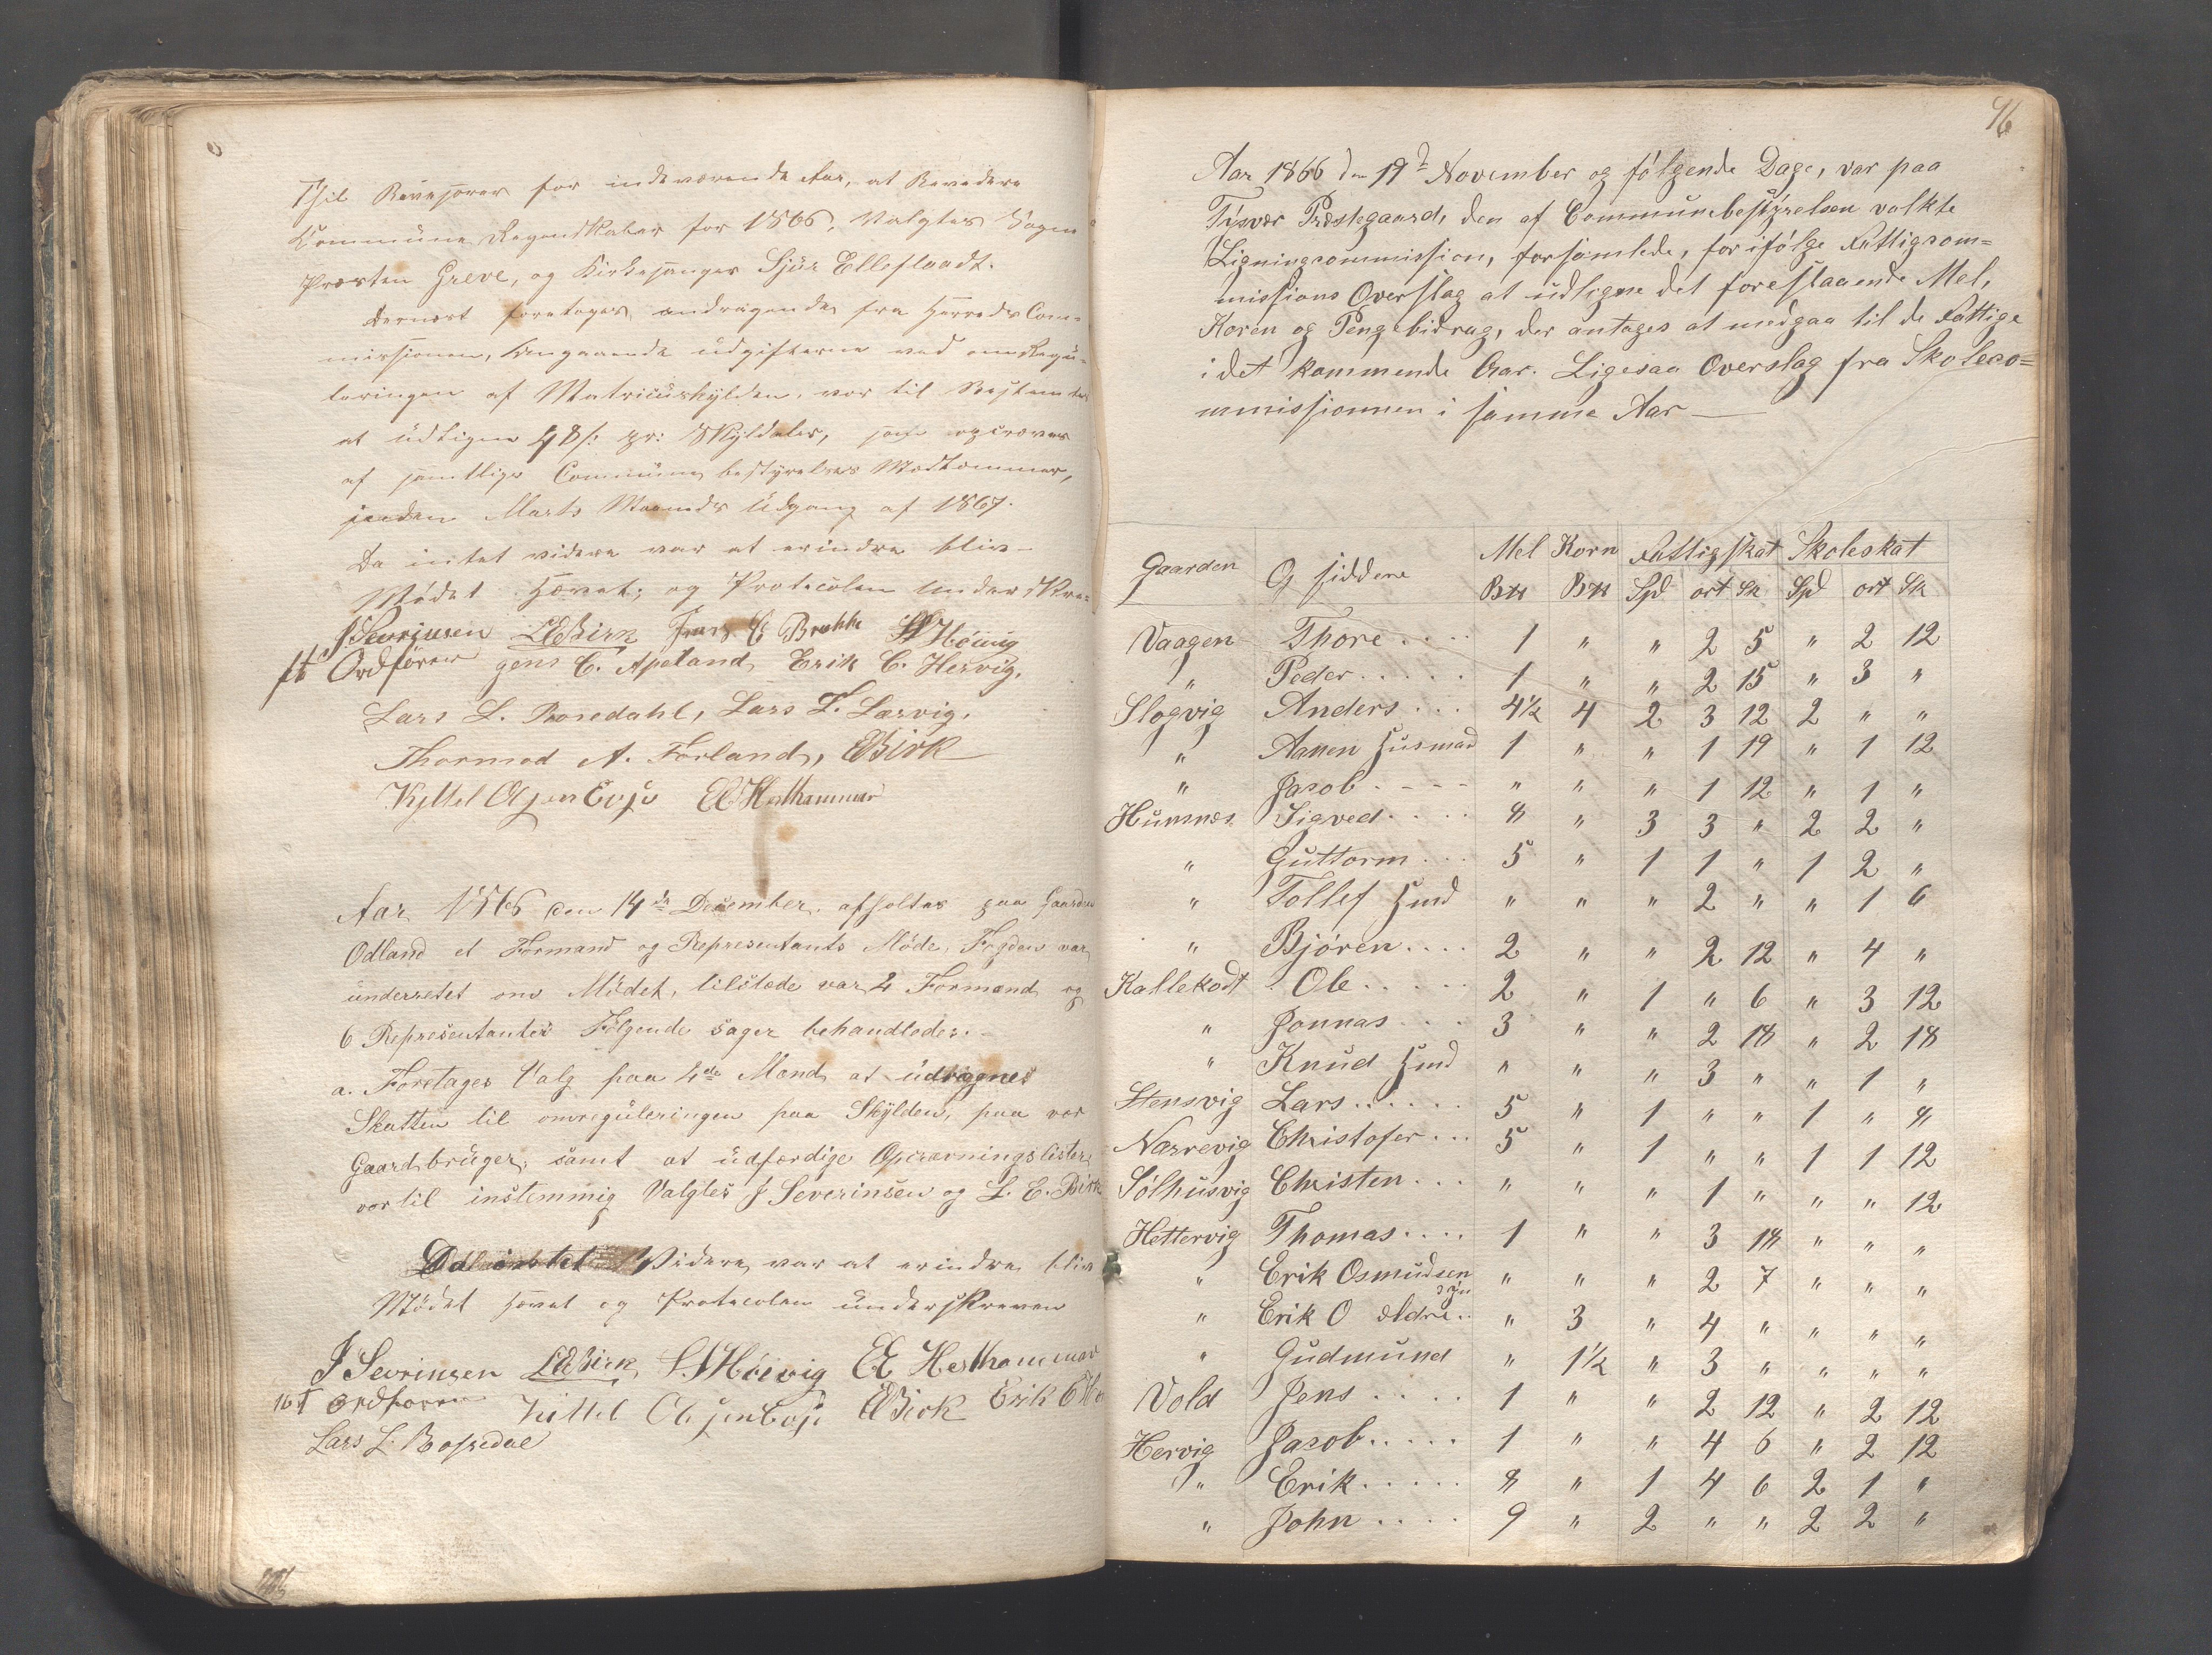 Thil Revejorer for indeværende Aar, at Revedere
Commüne Regenskaber for 1866, Valgtes Sogne
Præsten Greve, og Kirkesanger Sjür Elleflaadt.
Dernæst foretoges, andragende fra Herreds Com-
missionen, Angaaende üdgifterne ved omRegü-
leringen af Matricürskylden, vor til Bestemtes
at üdligne 48 s: pr: Skÿldaler, som opcræves
af samtlige Commüne bestÿrelses Medlemmer,
inden Marts Maaneds Üdgang af 1867.
Da intet videre var at erindre bliv
Mödet Hævet, og Protocolen Underskre-
J Sevrinsen LEBirk Frans C Brekke SHönig
ft Ordförer Jens C. Apeland, Erik C. Hervig,
Lars L. Bosedahl, Lars T. Larvig,
Thormod A. Førland, EBirk
Kyttel Olsen Evje EE Hesthammer
Aar 1866 den 14de December, afholtes paa Gaarden
Odland et Formand og Representants Møde, Fogden var
ünderretet om Mödet, tilstede var 4 Formænd og
6 Representanter Følgende sager behandledes.
a. Foretages Valg paa 4de Mænd at üdligne
Skatten til omregüleringen paa Skÿlden, paa vor
Gaardbrüger, samt at üdfærdige Opcrævningslister,
vor til instemmig Valgtes J Severinsen og L. E. Birk
Videre var at erindre bliv
Mödet Hævet og Protocolen ünderskreven
J Sevrinsen LEBirk S. Höevig EE Hesthammer
16t Ordförer Kittel Olsen Evje EBirk Erik C He
Lars L. Bossedal
96
Aar 1866 den 19d November og følgende Dage, var paa
Tÿsvær Præstegaard, den af Communebestÿrelsen valkte
Ligningcommission, forsamlede, for ifølge Fattigcom=
missions Overslag at üdligne det forestaaende Mel,
Koren og Pengebidrag, der antages at medgaa til de Fattige
i det kommende Aar. Ligesaa Overslag fra Skoleco=
mmissionnen i samme Aar
Gaarden Ofsiddere Mel Korn Fattigskat Skoleskat
Btt Btt Spd ort Sk Spd ort Sk
Vaagen Thore.... 1 " " 2 5 " 2 12
" Peder..... 1 " " 2 15 " 3 "
Slogvig Anders... 4½ 4 2 3 12 2 " "
" Aanen Husmad 1 " " 1 19 " 1 12
" Jacob.--- " " " 1 12 " 1 "
Humnes Sigved.... 8 " 3 3 " 2 2 "
" Guttorm... 5 " 1 1 " 1 2 "
" Tollef Hmd " " " 2 " " 1 6
" Bjóren.... 2 " " 2 12 " 4 "
Kallekodt Ole..... 2 " 1 " 6 " 3 12
" Jonnas... 3 " " 2 18 " 2 18
" Knud Hmd " " " 3 " " 1 "
Stensvig Lars...... 5 " 1 " " 1 " 8
Narrevig Christofer... 5 " 1 " " 1 1 12
Sólhüsvig Christen... " " " 1 " " " 12
Hettervig Thomas.... 1 " " 3 18 " " "
" Erik Osmudsen " " " 2 7 " " "
" Erik O Ældre.. " 3 " 4 " " " "
" Gudmünd " 1½ " 3 " " " "
Vold Jens.... 1 " " 2 12 " 2 12
Hervig Jacob..... 1 " " 4 6 " 2 12
" Erik..... 8 " 1 4 6 2 1 "
" John.... 9 " 2 " " 2 2 "